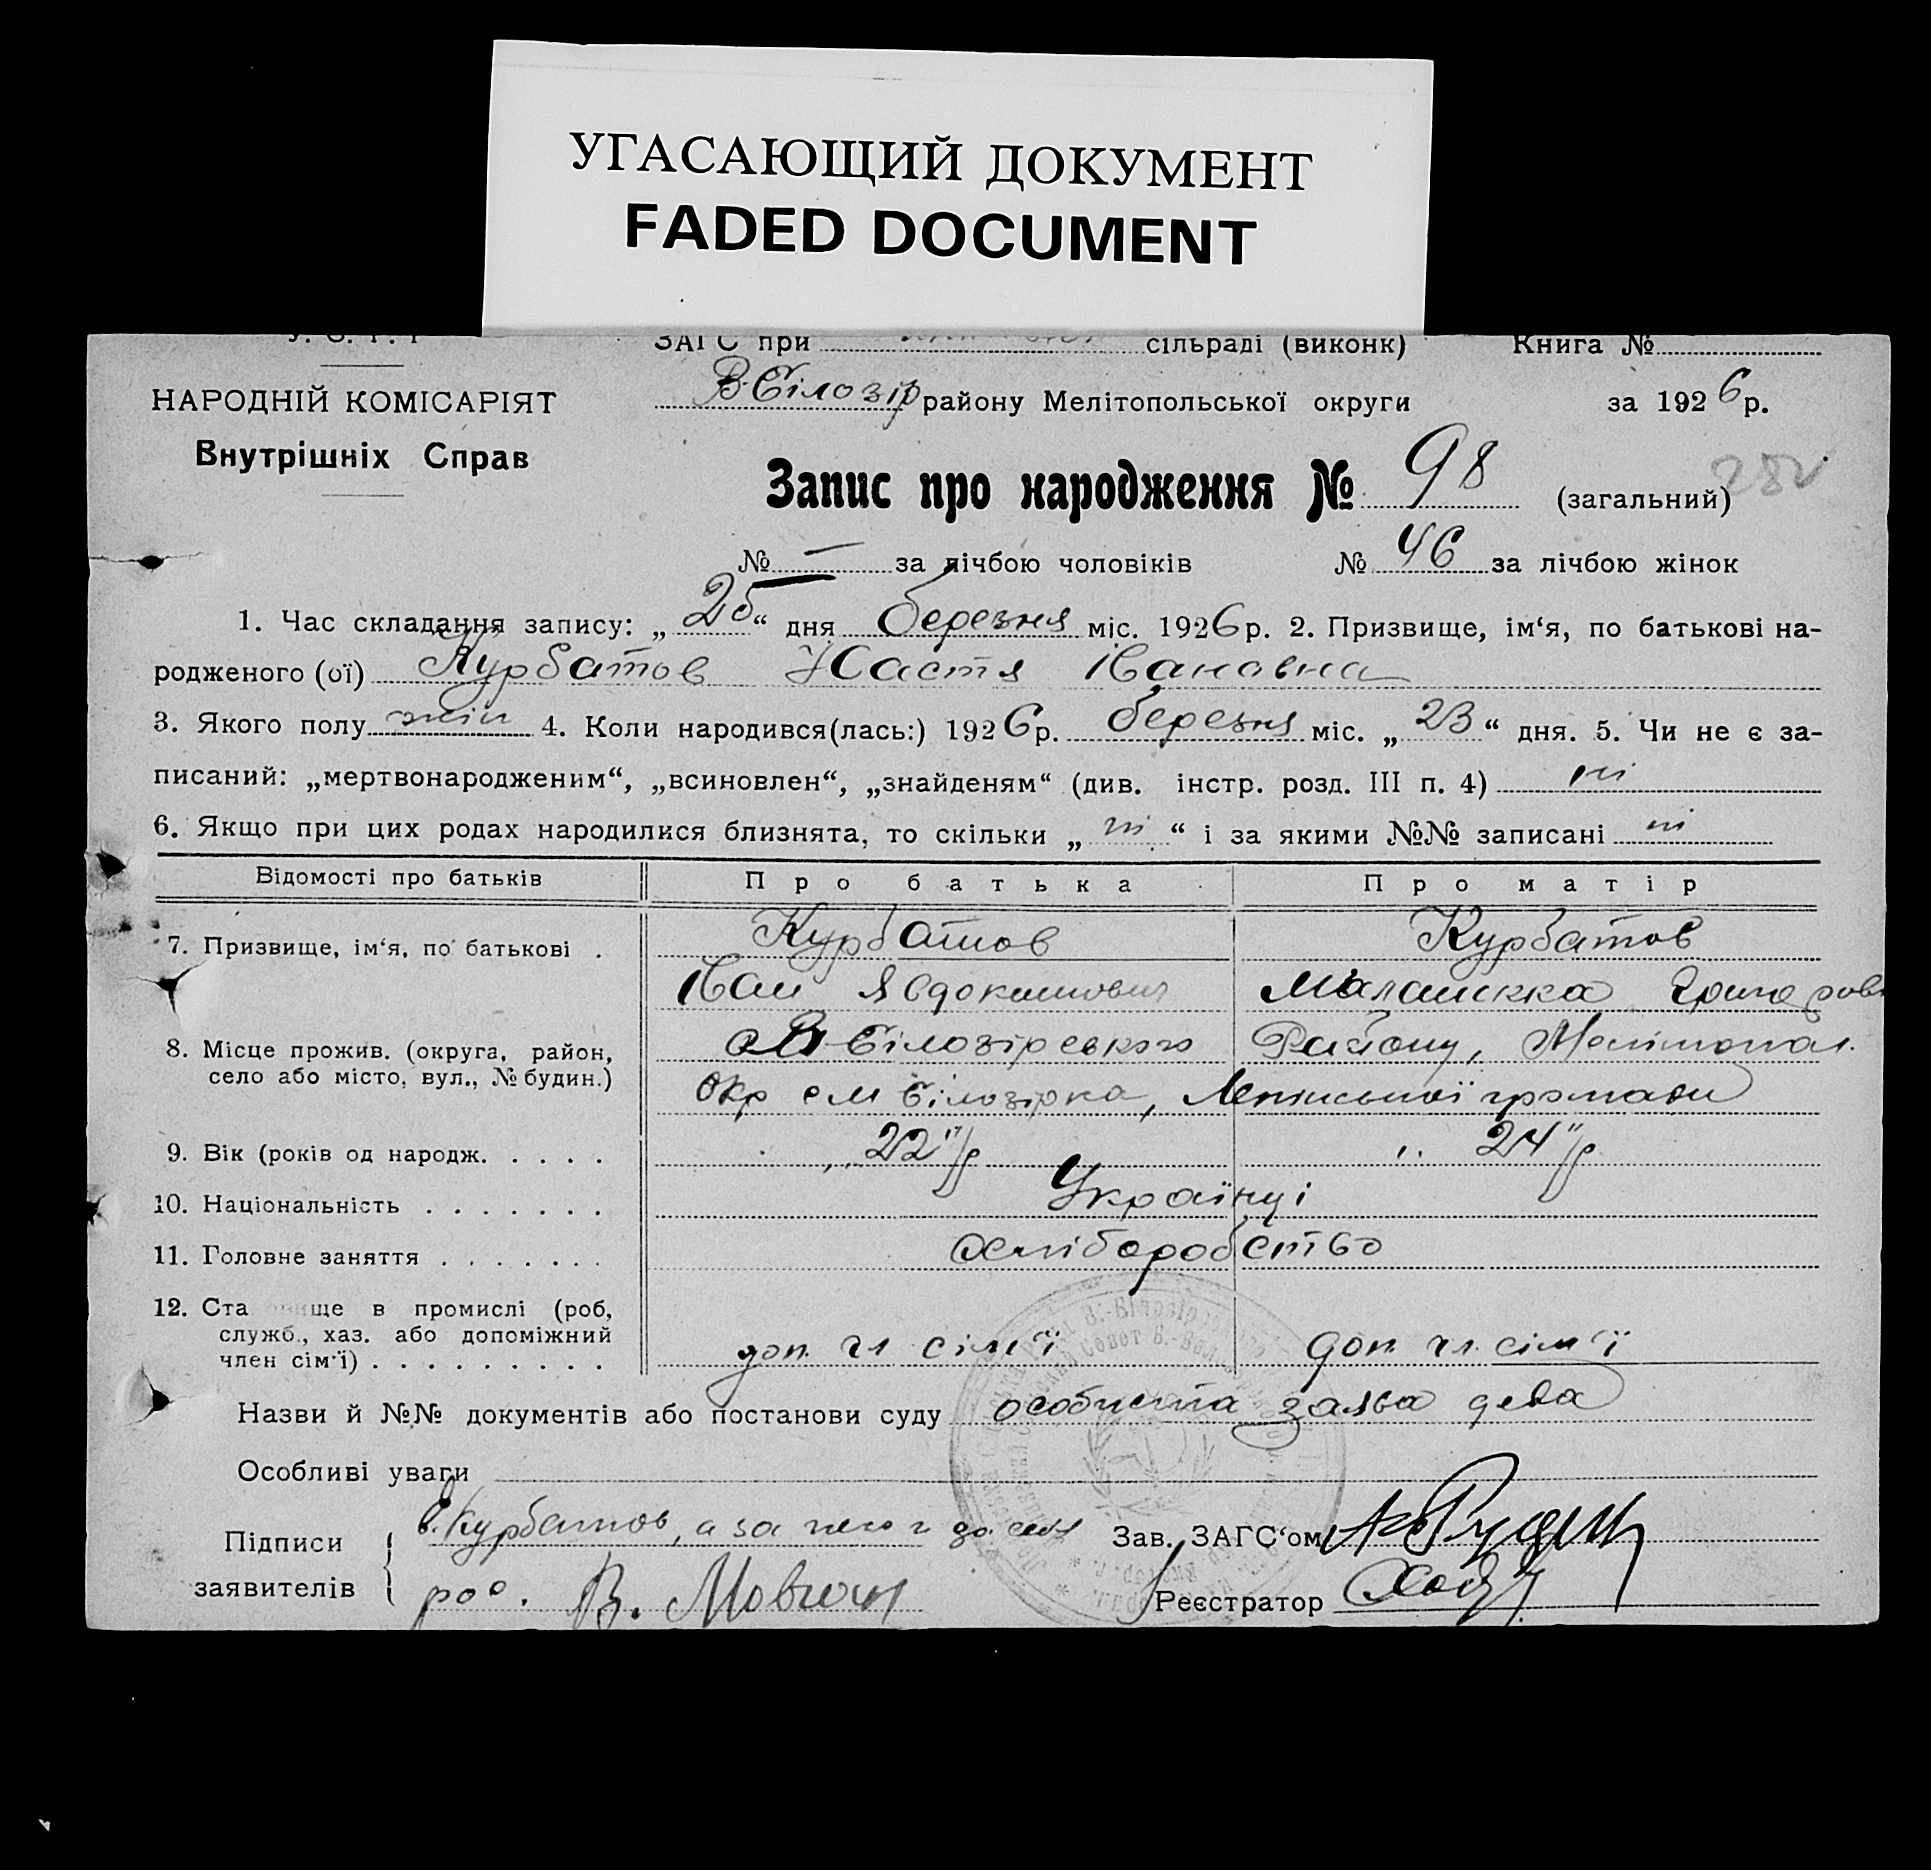 УГАСАЮЩИЙ ДОКУМЕНТ
FADED DOCUMENT
У. С. Р. Р
ЗАГС при сільраді (виконк) Книга №
НАРОДНІЙ КОМІСАРІЯТ
В-Білозір району Мелітопольської округи за 1926 р.
Внутрішніх Справ
Запис про народження № 98 (загальний)
№ — за лічбою чоловіків № 46 за лічбою жінок
1. Час складання запису: „25“ дня березня міс. 1926 р. 2. Призвище, ім‘я, по батькові на-
родженого (ої) Курбатов Настя Івановна
3. Якого полу жін 4. Коли народився(лась:) 1926 р. березня міс. „23“ дня. 5. Чи не є за-
писаний: „мертвонародженим“, „всиновлен“, „знайденям“ (див. інстр. розд. III п. 4) ні
6. Якщо при цих родах народилися близнята, то скільки „ні“ і за якими №№ записані ні
Відомості про батьків Про батька Про матір
7. Призвище, ім‘я, по батькові . Курбатов Курбатов
Іван Явдокимович
8. Місце прожив. (округа, район, В-Білозірського Району, Мелітопол.
село або місто, вул., № будин.) Окр с М Білозірка, громади
9. Вік (років од народж. . . . . „22“ р „24“ р
10. Національність . . . . . . . Українці
11. Головне заняття . . . . . . . Хліборобство
12. Ста ище в промислі (роб,
служб., хаз. або допоміжний
член сім‘ї) . . . . . . . . . . доп. чл сім‘ї доп. чл. сім‘ї
Назви й №№ документів або постанови суду особиста заява деда
Особливі уваги
Підписи Курбатов, а за него Зав. ЗАГС‘ом
заявителів рос. В. Мовчан Реєстратор